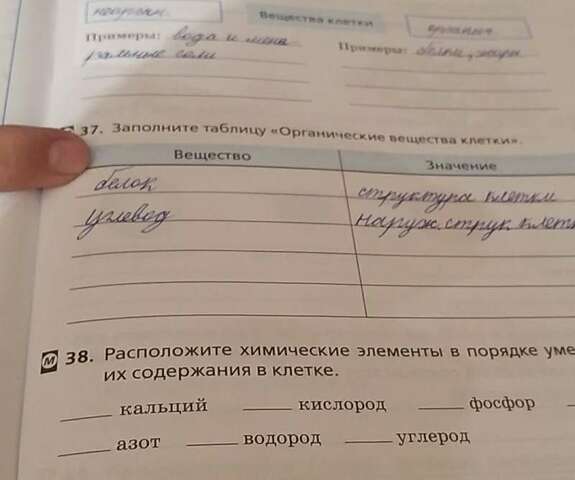 неорган.
Вещества клетки
органич
Примеры: вода и мине
ральные соли
Примеры: белки, жиры
37. Заполните таблицу «Органические вещества клетки».
Вещество
Значение
белок
структура клетки
углевод
наруж. струк. клетк
38. Расположите химические элементы в порядке уме
их содержания в клетке.
кальций кислород фосфор
азот водород углерод